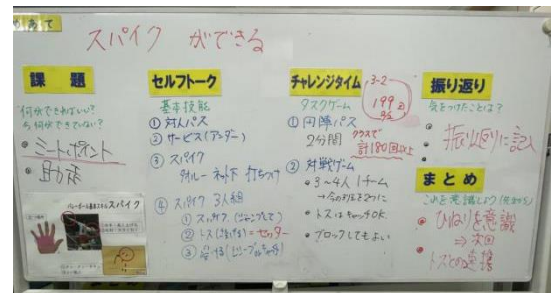 めあて
スパイク ができる
課題
何ができればいい?
今何ができていない?
・ミートポイント
・助走
バレーボール基本スキル スパイク
セルフトーク
基本技能
① 対人パス
② サービス(アンダー)
③ スパイク
ネット下 打ちつけ
④ スパイク 3人組
① スパイク(ジャンプして)
② トス(投げる)=セッター
チャレンジタイム
3-2
199回
タスクゲーム
① 円陣パス
2分間 クラスで
計180回以上
② 対戦ゲーム
・3~4人 1チーム
・トスはキャッチOK
・ブロックしてもよい
振り返り
気をつけたことは?
・振り返りに記入
まとめ
これを意識しよう
・ひねりを意識
⇒ 次回
トスとの連携